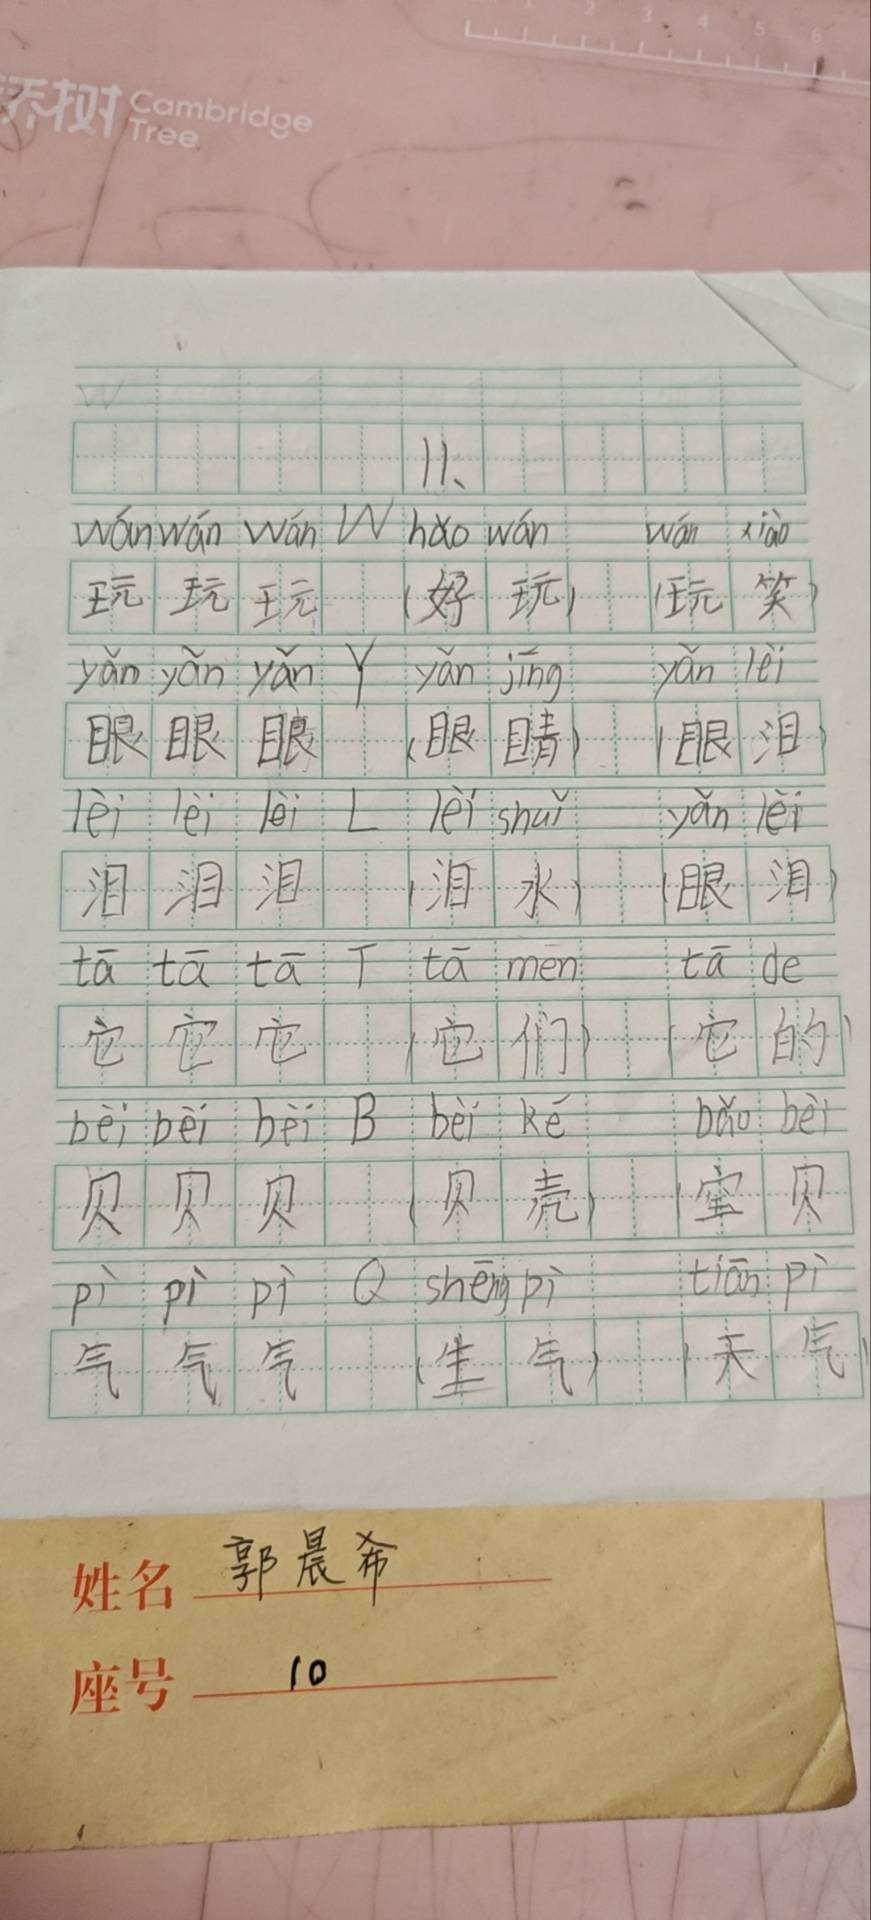 乔树 Cambridge Tree
1 2 3 4 5 6
W
11、
wán wán wán W hǎo wán wán xiào
玩 玩 玩 (好 玩) (玩 笑)
yǎn yǎn yǎn Y yǎn jīng yǎn lèi
眼 眼 眼 (眼 睛) (眼 泪)
lèi lèi lèi L lèi shuǐ yǎn lèi
泪 泪 泪 (泪 水) (眼 泪)
tā tā tā T tā mēn tā de
它 它 它 (它 们) (它 的)
bèi bèi bèi B bèi ké bǎo bèi
贝 贝 贝 (贝 壳) (宝 贝)
pì pì pì Q shēng pì tiān pì
气 气 气 (生 气) (天 气)
姓名 郭晨希
座号 10